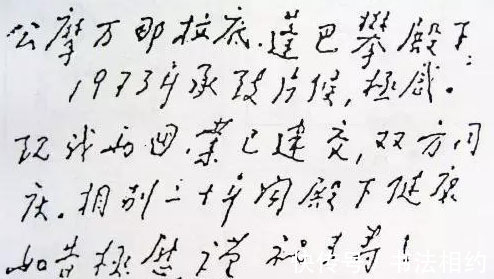 公摩万那拉底.蓬巴攀殿下:
1973年承致片候,极感。
现我两国.业已建交,双方同
庆.相别二十年闻殿下健康
如昔极慰.谨祝寿!
快传号/书法相约